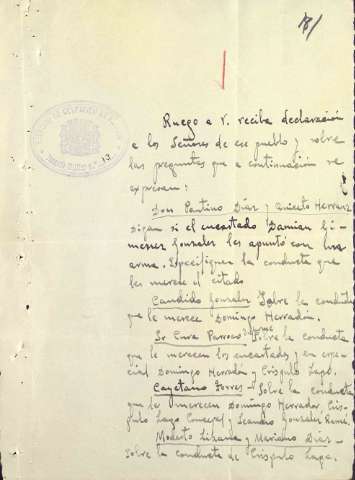 Ruego a V. reciba declaración
a los Señores de ese pueblo y sobre
las preguntas que a continuación se
expresan:
Don Paulino Díaz y Aniceto Herranz
digan si el encartado Damian Gi-
menez Gonzalez les apuntó con un
arma. Especifiquen la conducta que
les merece el citado
Candido Gonzalez Sobre la conducta
que le merece Domingo Herradón.
Sr Cura Parroco Informe Sobre la conducta
que le merecen los encartados, y en espe-
cial Domingo Herradón, y Críspulo
Cayetano Torres - Sobre la conducta
que le merecen Domingo Herrador, Crís-
pulo y Leandro Gonzalez
Modesto y Mariano Diaz -
Sobre la conducta de Críspulo